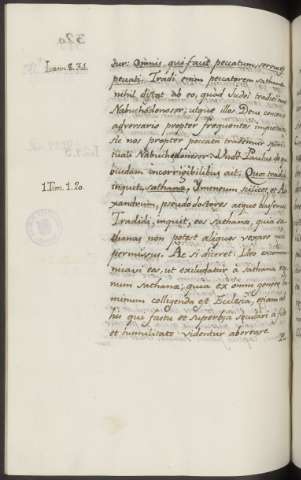 320
Ioan. 8. 34.
tur: Omnis, qui facit peccatum, servus est
peccati. Tradi enim peccatorem sathanæ
nihil distat ab eo, quod Iudæi traditi sunt
Nabuchodonosor; utque illos Deus
adversario propter frequentes
sic nos propter peccata tradimur
Nabuchodonosor. Unde Paulus de
busdam incorrigibilibus ait: Quos tradidi
1.Tim. 1. 20.
inquit, sathanæ, Hymenæum scilicet, et Ale
xandrum, pseudodoctores atque
Tradidi, inquit, eos sathanæ, quia sa
thanas non potest aliquos vexare nisi
permissus. Ac si diceret: Ideo excommu
nicavi eos, ut excludatur à sathana
num sathanæ; quia ex omni genere ho
minum colligenda est Ecclesia, etiam
his qui fastu et superbia sæculari à fide
et humilitate videntur aberrare